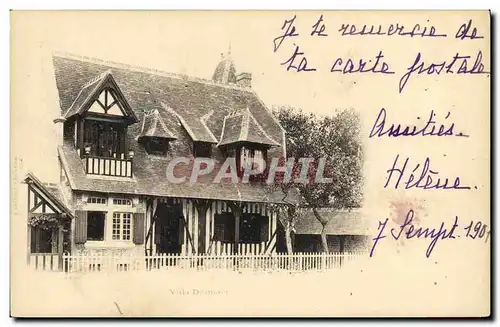 Je te remercie de
ta carte postale.
Amitiés.
Hélène.
7 Sempt.
CPARAMA.COM
Villa